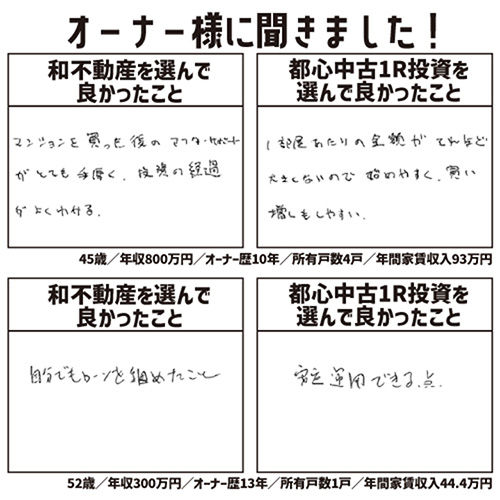 オーナー様に聞きました！
和不動産を選んで
良かったこと
マンションを買った後のアフターサポート
がとても手厚く、投資の経過
がよくわかる。
都心中古1R投資を
選んで良かったこと
1部屋あたりの金額がそれほど
大きくないので始めやすく、買い
増しもしやすい。
45歳／年収800万円／オーナー歴10年／所有戸数4戸／年間家賃収入93万円
和不動産を選んで
良かったこと
自分でもローンを組めたこと
都心中古1R投資を
選んで良かったこと
安定運用できる点.
52歳／年収300万円／オーナー歴13年／所有戸数1戸／年間家賃収入44.4万円